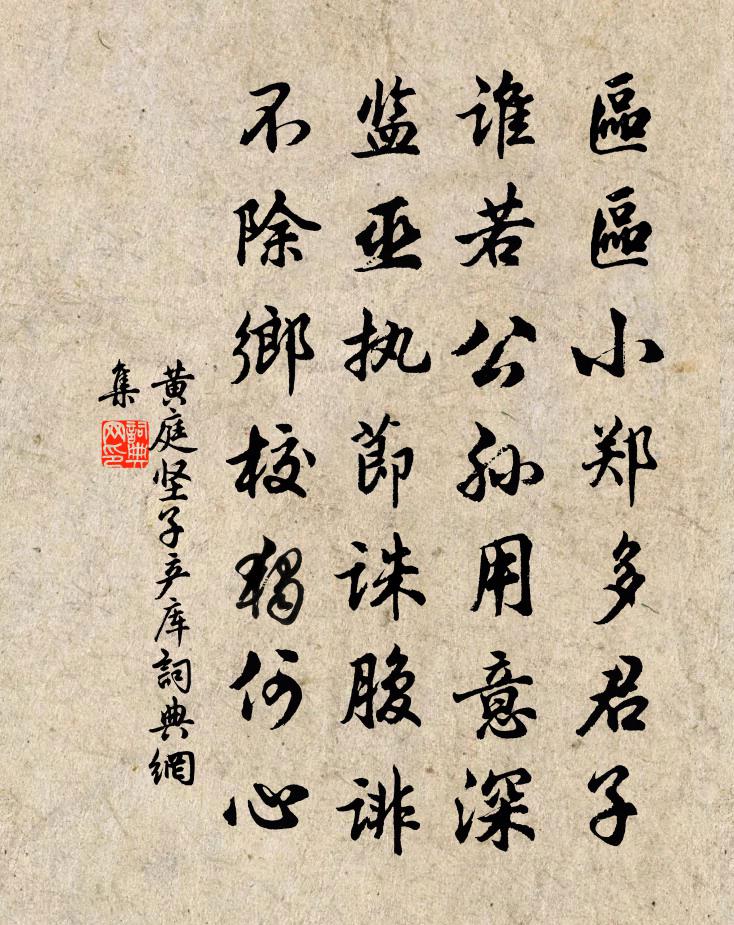 區區小郑多君子
谁若公孙用意深
监巫执節诛腹诽
不除鄉校獨何心
黄庭坚子产库詞典網
集
詞典
网印